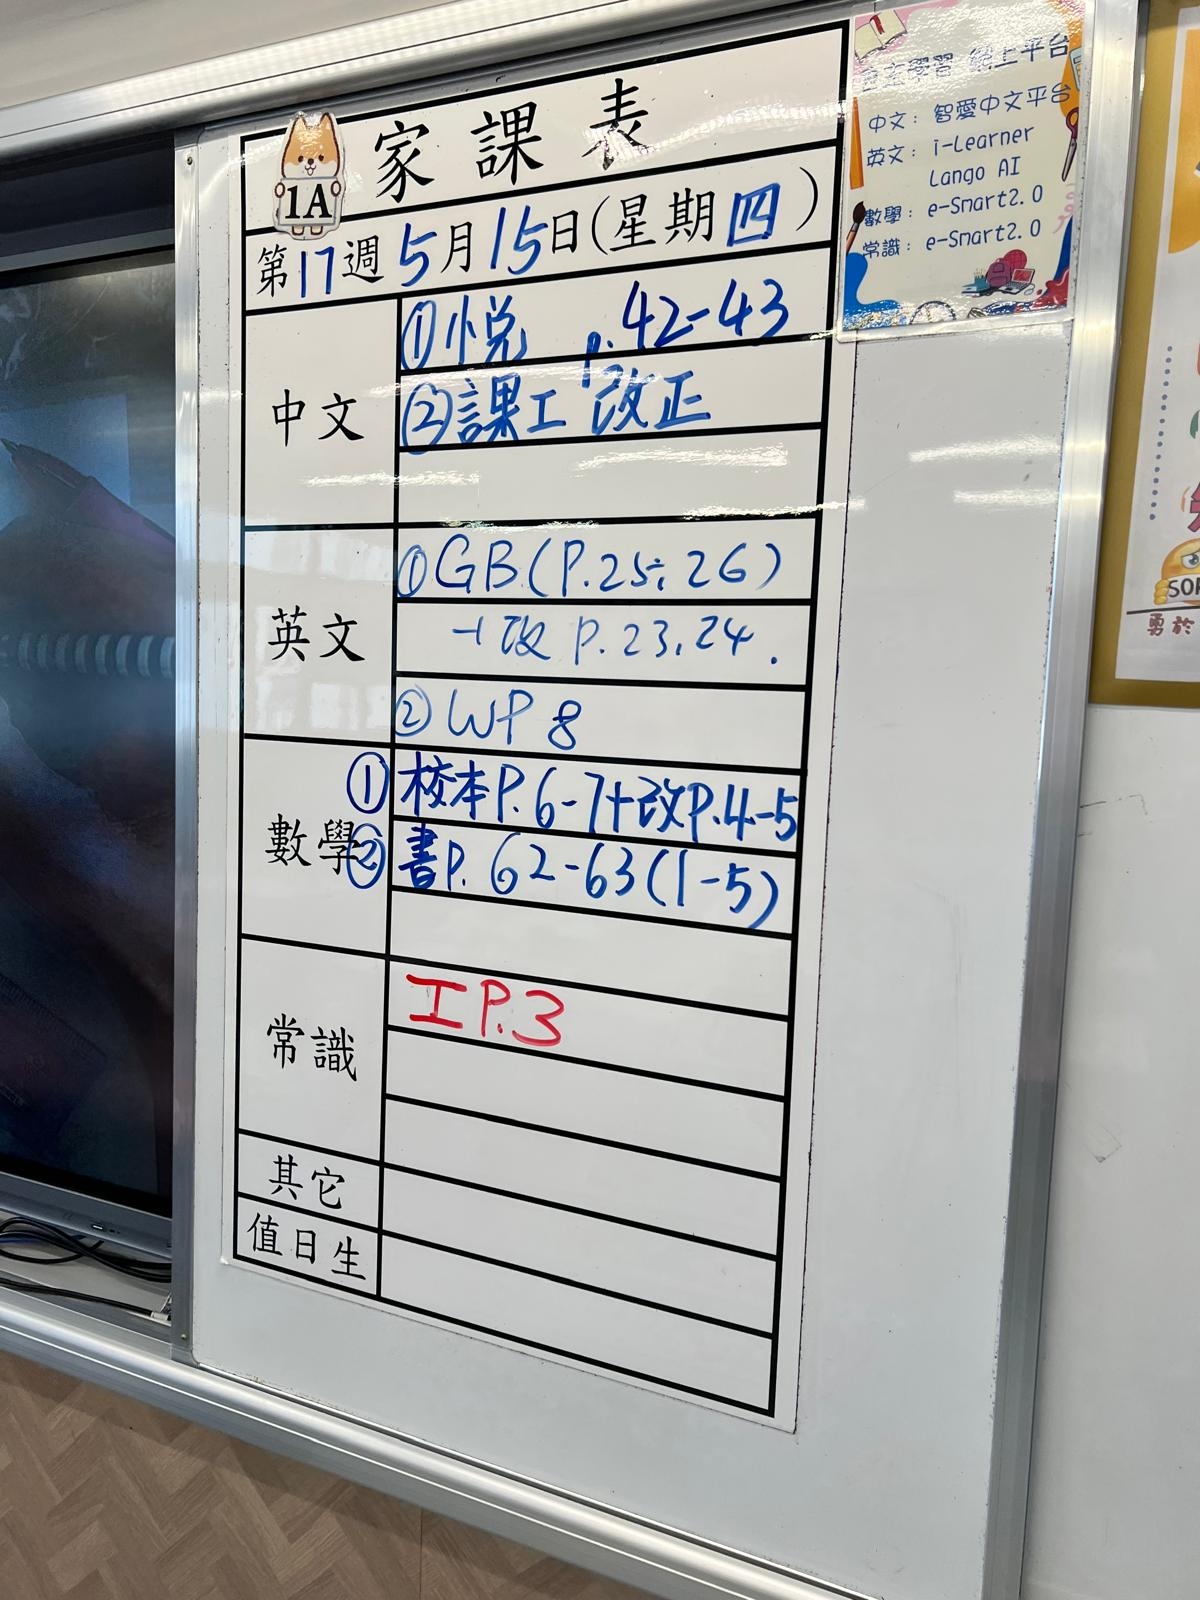 家課表
1A
第17週5月15日(星期四)
中文
①悅 p.42-43
②課工 改正
英文
①GB(P.25;26)
+改 P.23,24.
②WP 8
數學
①校本P.6-7+改P.4-5
②書P.62-63(1-5)
常識
工P.3
其它
值日生
自主學習 網上平台
中文：智愛中文平台
英文：i-Learner
Lango AI
數學：e-Smart2.0
常識：e-Smart2.0
勇於